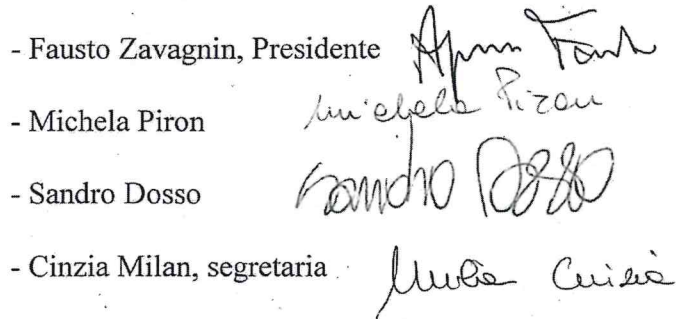 - Fausto Zavagnin, Presidente
- Michela Piron Michela Piron
- Sandro Dosso Sandro Dosso
- Cinzia Milan, segretaria